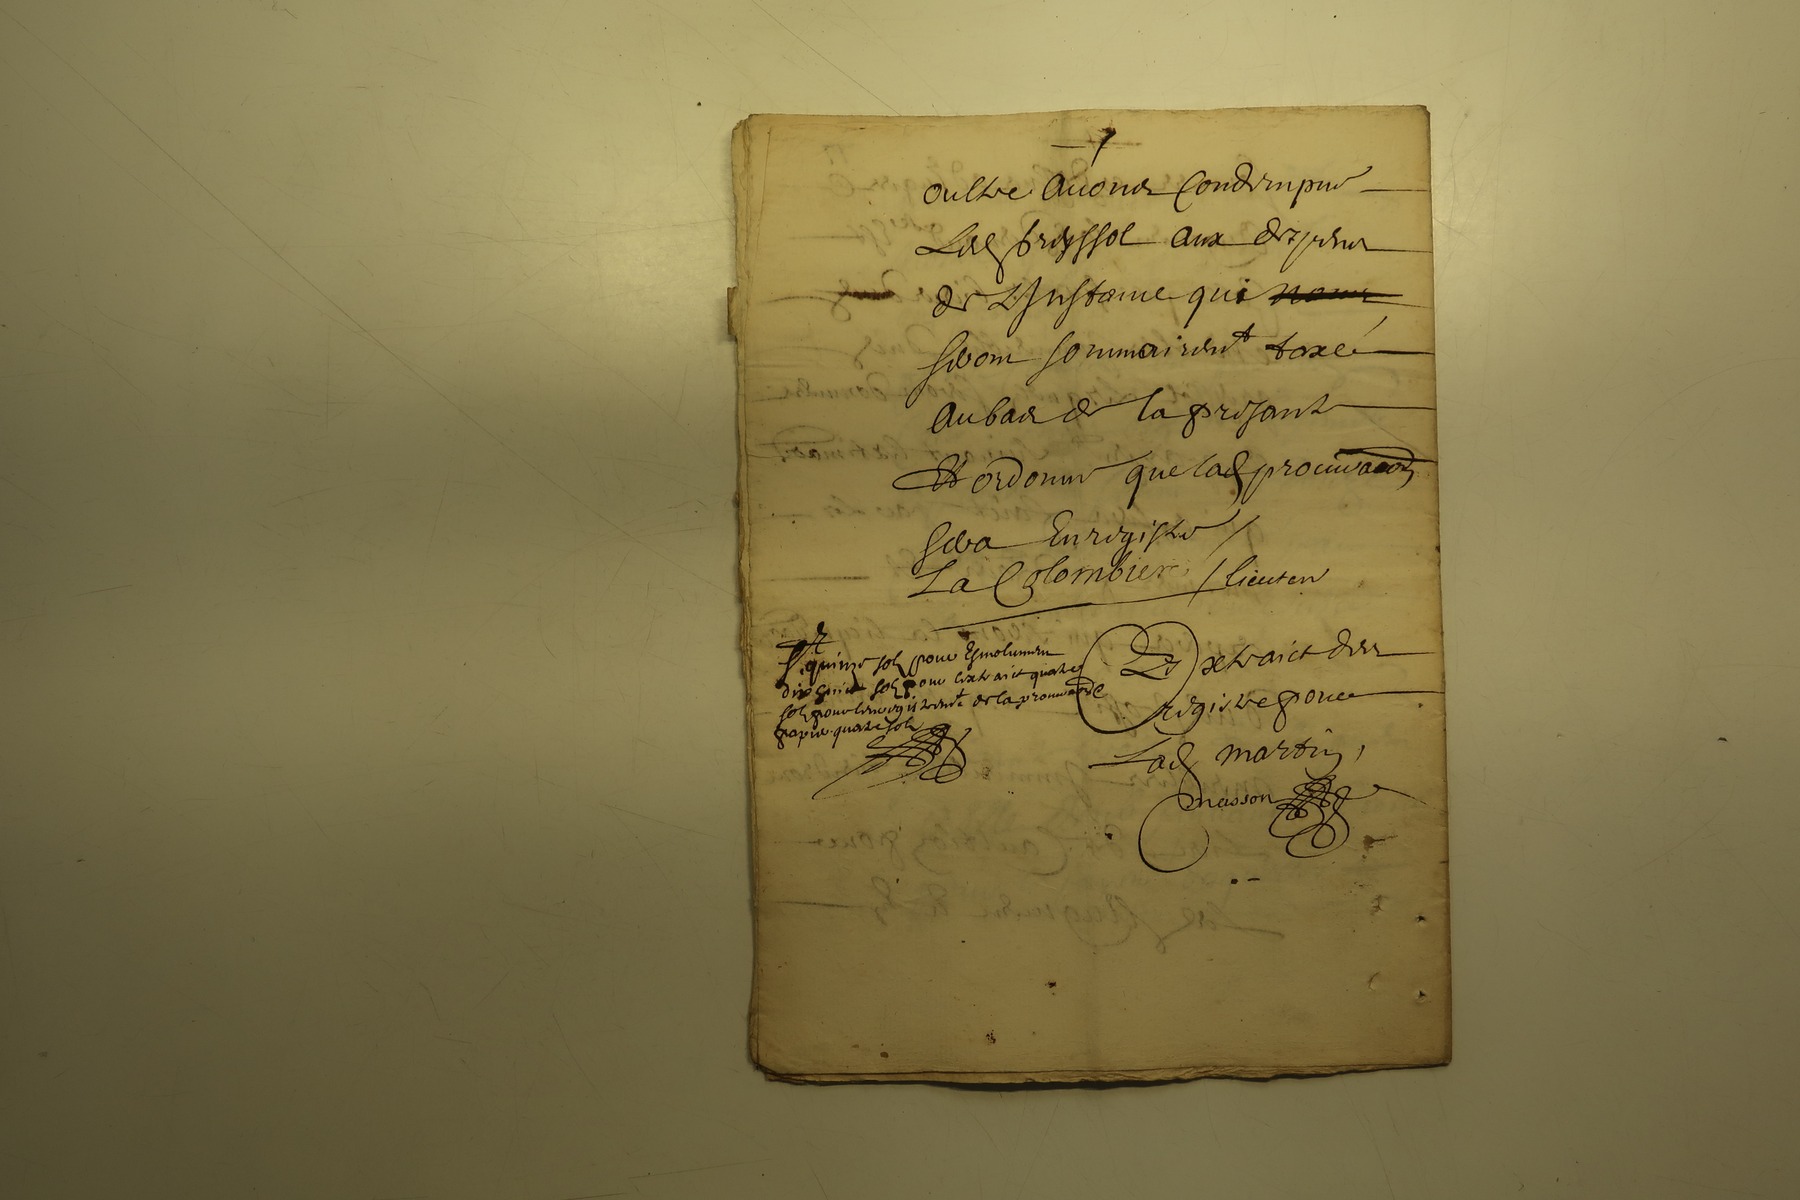 oultre Avons Condempné
Led breyssol aux despens
de L'Instance qui nous
seront sommairemt taxé
Aubas de la presante
Et ordonne que lad procuraõn
sera Enregistré /
La Colombiere / lieuten
quinze solz pour Esmolumen
dix huit solz pour lextraict quatre
solz pour lenregistremt de la procuraõn
papier quatre solz
Extraict des
registre pour
Lad martin,
masson